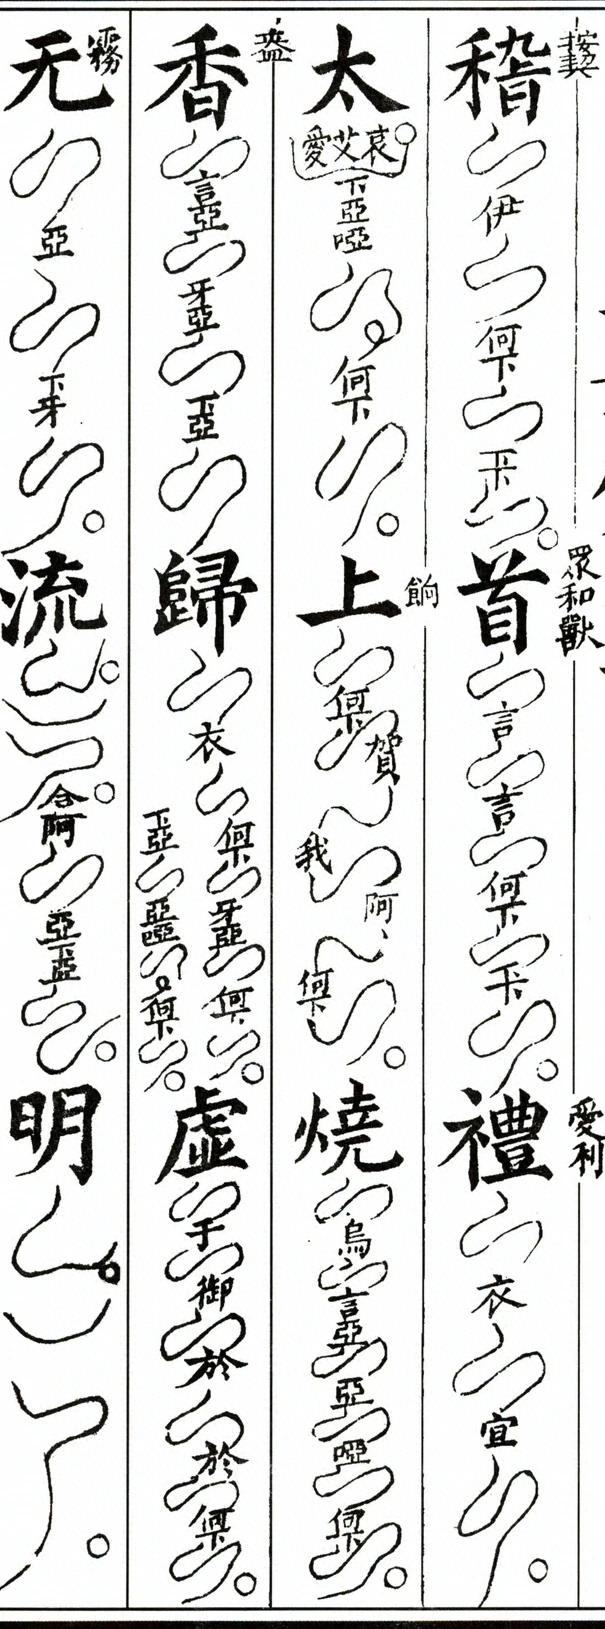 稽 伊 何下 首 眾和獸 言 言 何下 禮 愛利 衣 宜
太 哀艾愛 下亞啞 何下 上 餉 何下 賀 我 阿 何下 燒 烏 言亞 亞 啞 何下
香 盎 言亞 牙亞 下亞 歸 衣 何下 牙亞 何下 下亞 亞啞 何下 虛 于 御 於 於 何下
无 霧 亞 下牙 流 含阿 亞 下亞 明